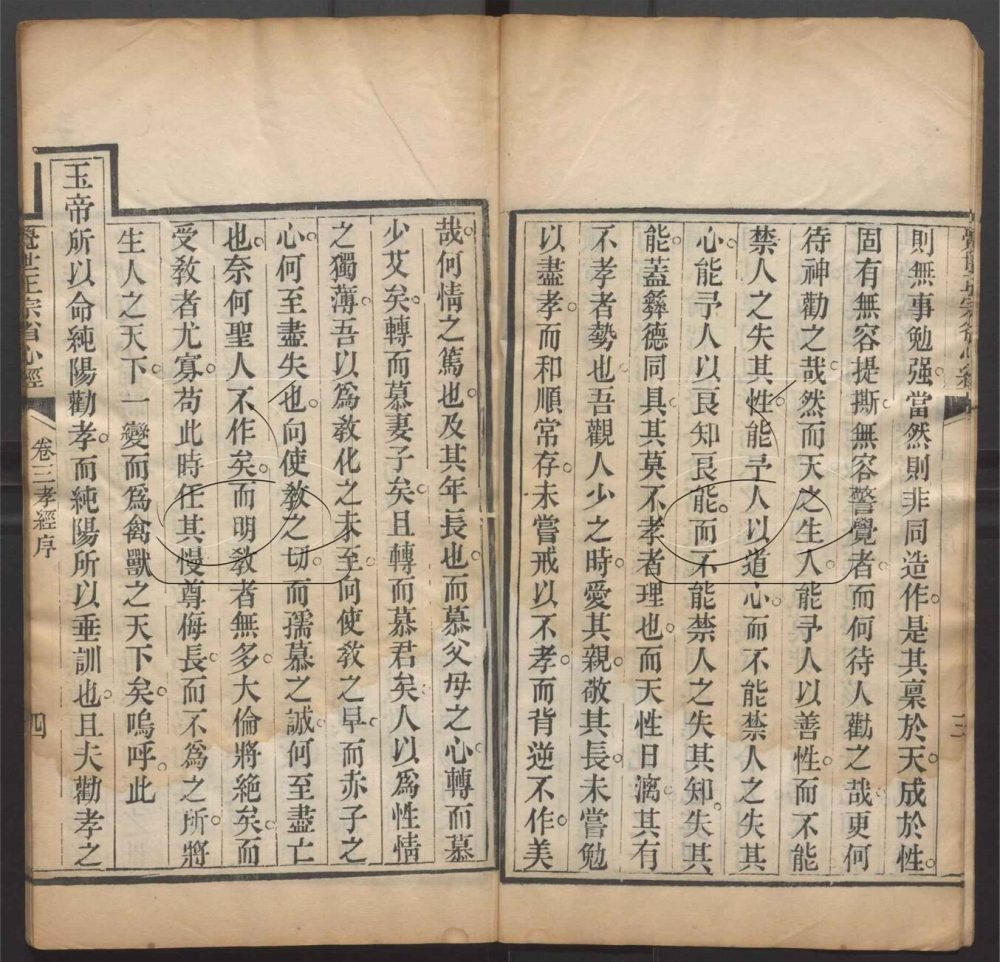 則無事勉强當然則非同造作。是其稟於天。成於性。
固有無容提撕。無容警覺者。而何待人勸之哉。更何
待神勸之哉。然而天之生人。能予人以善性。而不能
禁人之失其性。能予人以道心。而不能禁人之失其
心。能予人以良知良能。而不能禁人之失其知。失其
能。蓋彝德同具。其莫不孝者理也。而天性日漓。其有
不孝者勢也。吾觀人少之時。愛其親。敬其長。未嘗勉
以盡孝。而和順常存。未嘗戒以不孝。而背逆不作。美
三
哉。何情之篤也。及其年長也。而慕父母之心。轉而慕
少艾矣。轉而慕妻子矣。且轉而慕君矣。人以為性情
之獨薄。吾以為教化之未至。向使教之早。而赤子之
心。何至盡失也。向使教之切。而孺慕之誠。何至盡亡
也。奈何聖人不作矣。而明教者無多。大倫將絕矣。而
受教者尤寡。苟此時任其慢尊侮長。而不為之所。將
生人之天下。一變而為禽獸之天下矣。嗚呼。此
玉帝所以命純陽勸孝。而純陽所以垂訓也。且夫勸孝之
覺世正宗省心經
卷三孝經序
四